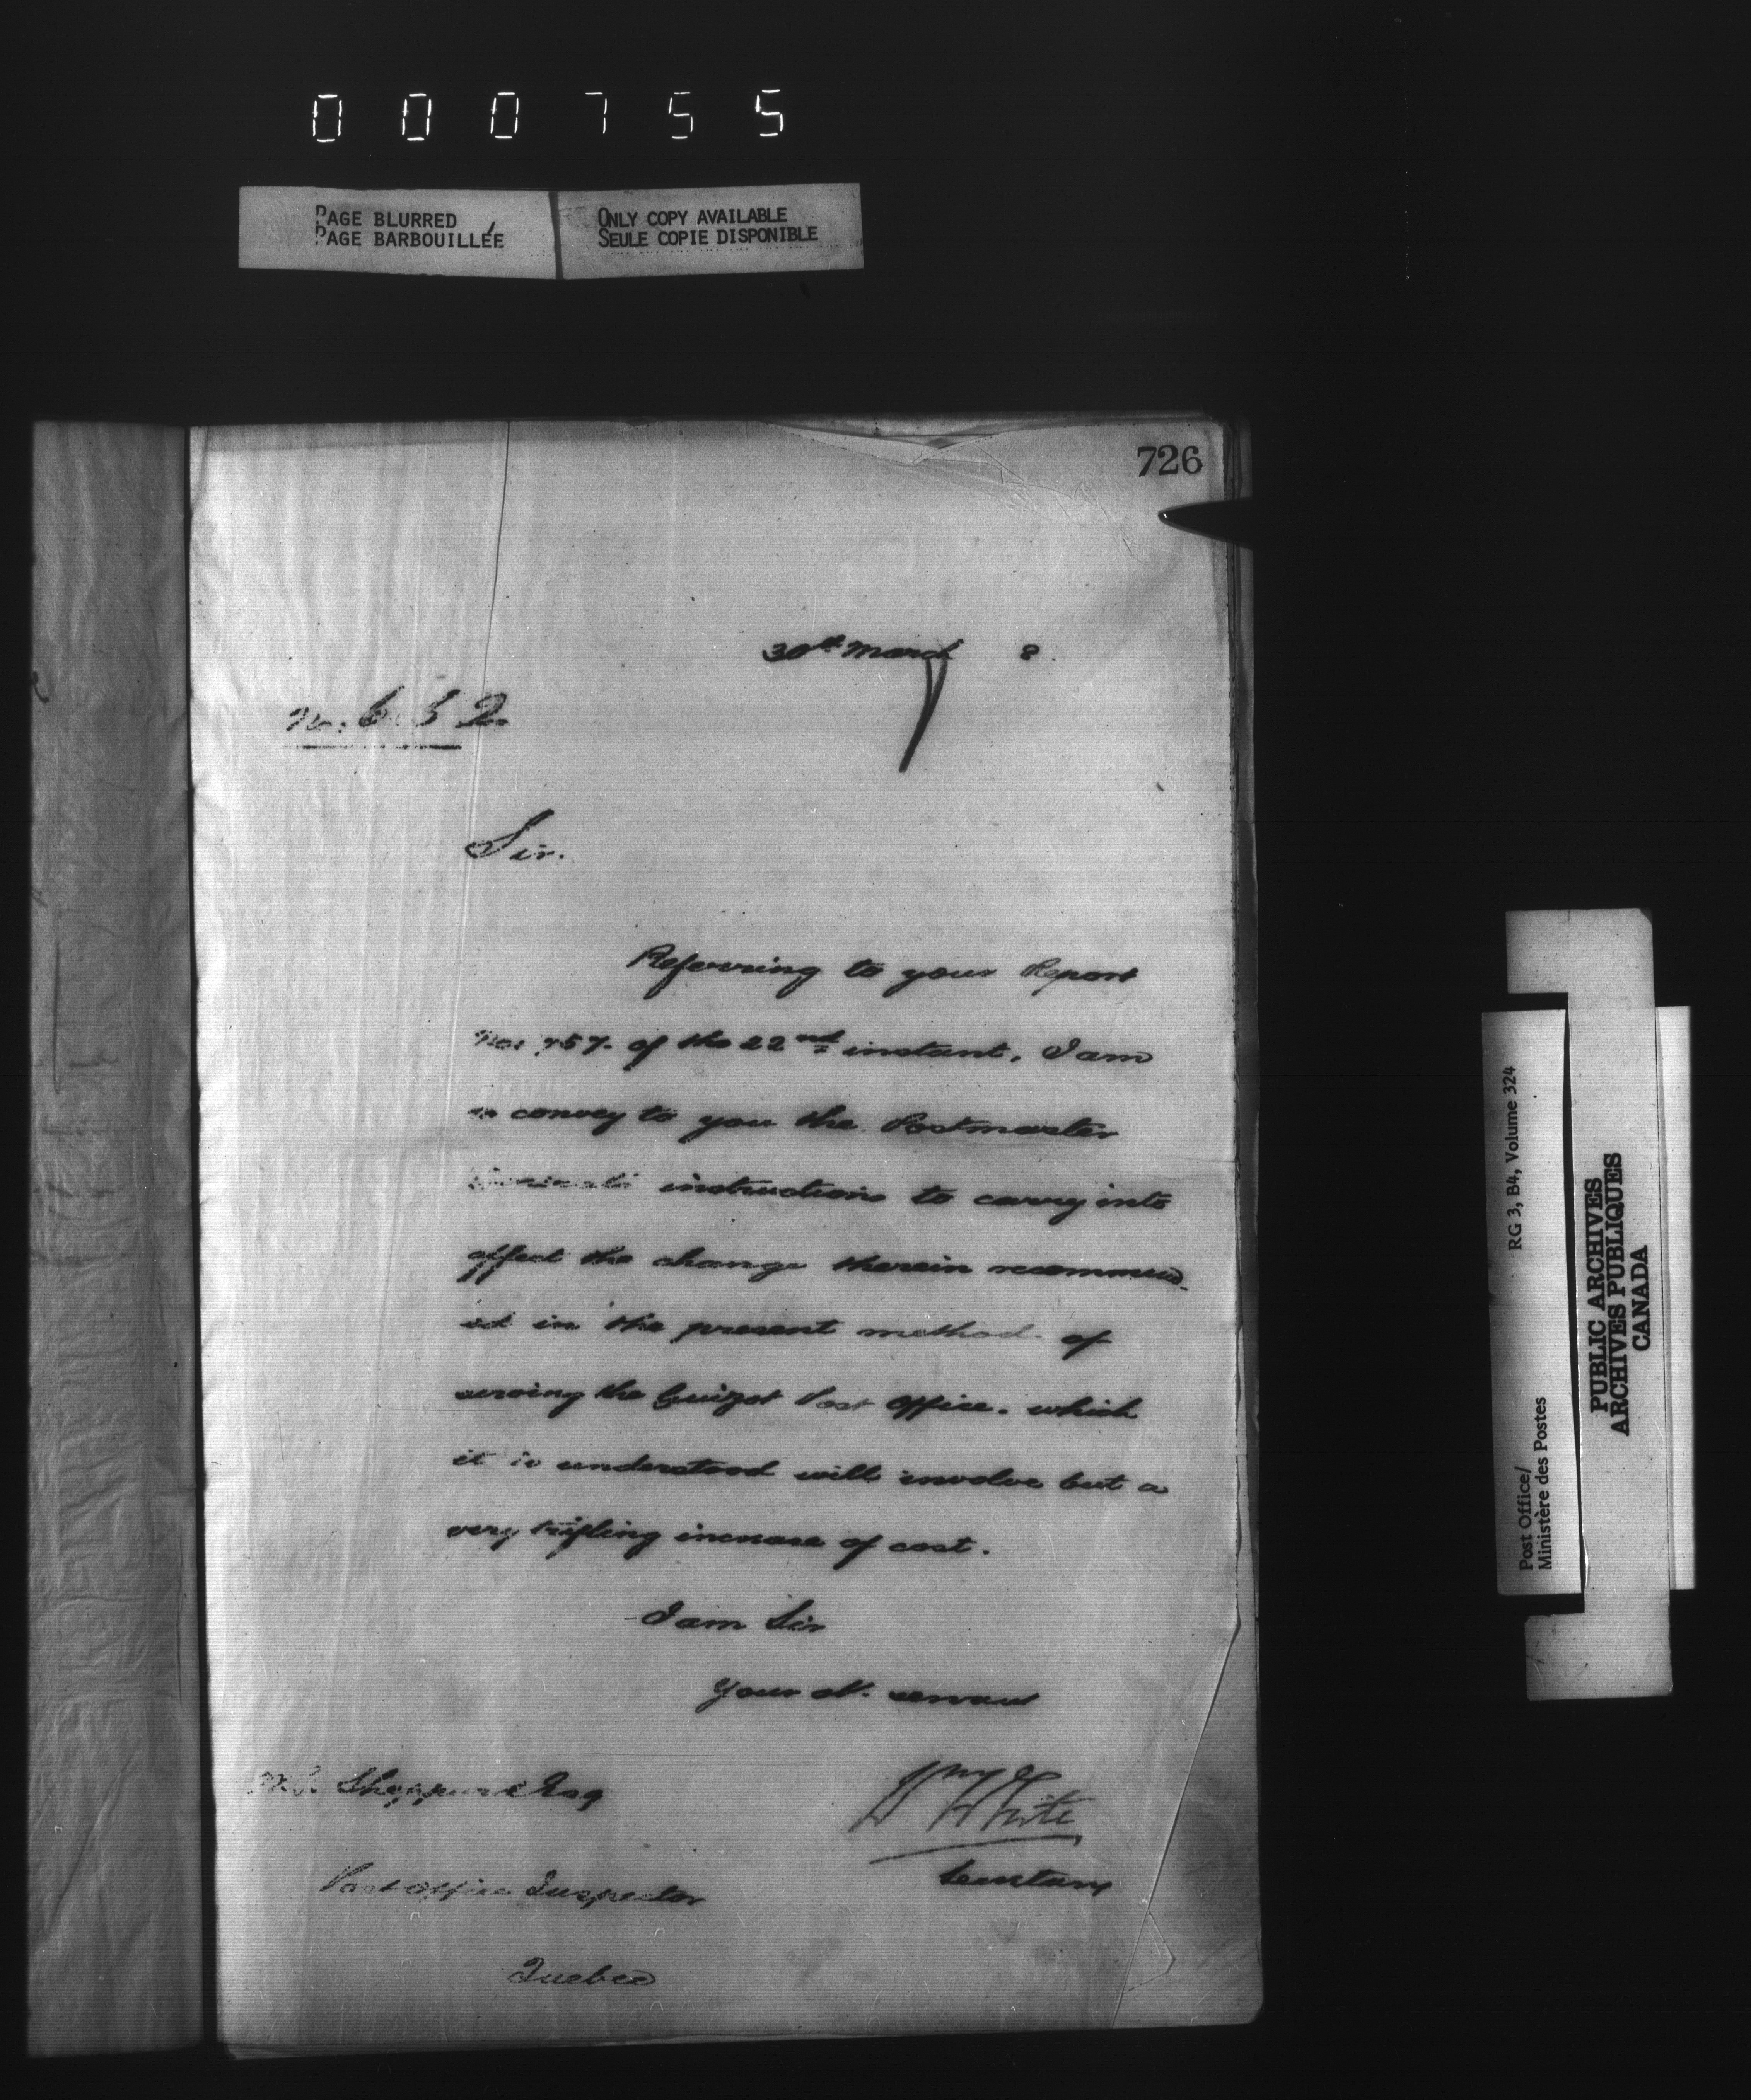 000755
PAGE BLURRED
PAGE BARBOUILLÉE
ONLY COPY AVAILABLE
SEULE COPIE DISPONIBLE
726
30th March 8.
No: 652
Sir.
Referring to your Report
No: 757. of the 22nd instant, I am
to convey to you the Postmaster
Generals instructions to carry into
effect the change therein recommend-
ed in the present method of
serving the Guizot Post Office. which
it is understood will involve but a
very trifling increase of cost.
I am Sir
Your ob. servant
Wm White
Secretary
Sheppard Esq
Post Office Inspector
Quebec
RG 3, B4, Volume 324
Post Office/
Ministère des Postes
PUBLIC ARCHIVES
ARCHIVES PUBLIQUES
CANADA